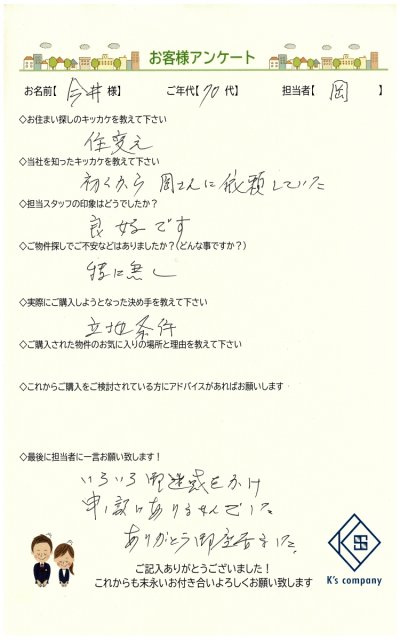 お客様アンケート
お名前【 今井 様】 ご年代【 70 代】 担当者【 岡 】
◇お住まい探しのキッカケを教えて下さい
住変え
◇当社を知ったキッカケを教えて下さい
初めから 岡さんに依頼していた
◇担当スタッフの印象はどうでしたか?
良好です
◇ご物件探しでご不安などはありましたか?(どんな事ですか?)
特に無し
◇実際にご購入しようとなった決め手を教えて下さい
立地条件
◇ご購入された物件のお気に入りの場所と理由を教えて下さい
◇これからご購入をご検討されている方にアドバイスがあればお願いします
◇最後に担当者に一言お願い致します!
いろいろ御迷惑をかけ
申し訳ありませんでした。
ありがとう御座いました。
ご記入ありがとうございました!
これからも末永いお付き合いよろしくお願い致します
K's company